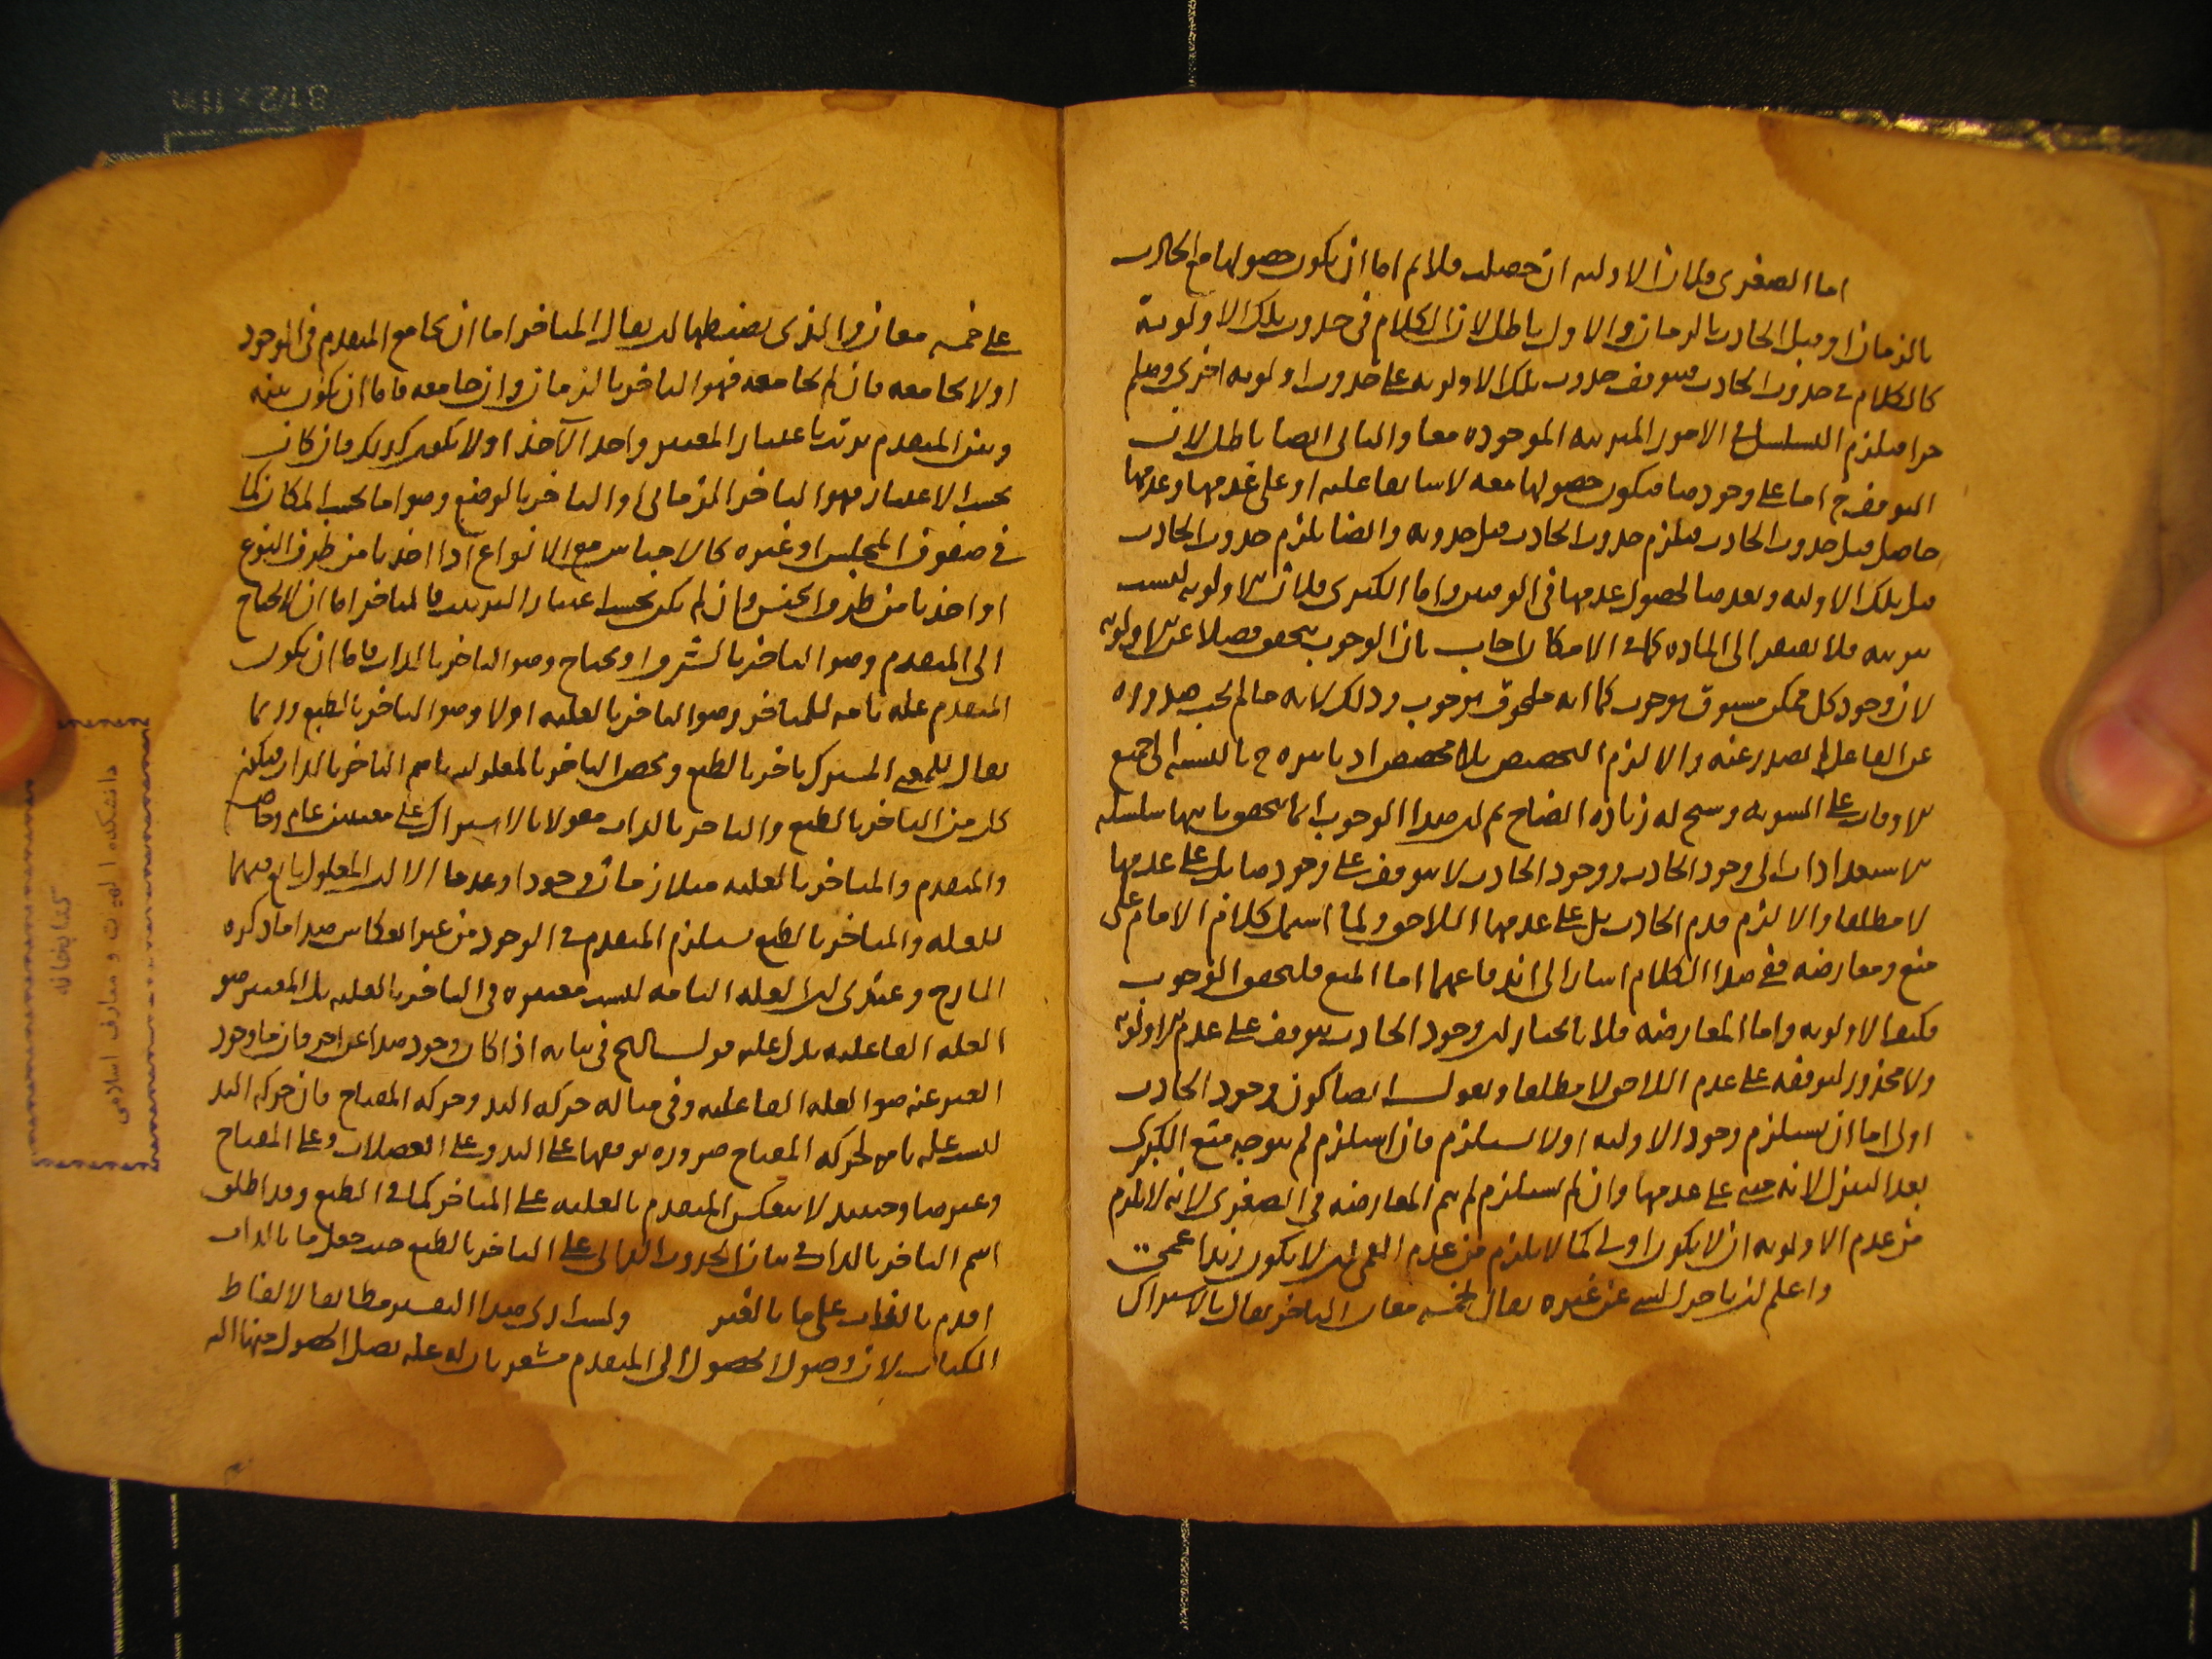 اما الصغرى فلان الاولية ان حصلت فلا يم اما ان يكون حصولها مع الحادث
بالزمان او قبل الحادث بالزمان والاول باطل لان الكلام في حدوث تلك الاولوية
كالكلام في حدوث الحادث فيتوقف حدوث تلك الاولوية على حدوث اولوية اخرى وهلم
جرا فيلزم التسلسل في الامور المترتبة الموجودة معا والتالى ايضا باطل لان
التوقف ح اما على وجودها فيكون حصولها معه لا سابقا عليه او على عدمها وعدمها
حاصل قبل حدوث الحادث فيلزم حدوث الحادث قبل حدوثه وايضا يلزم حدوث الحادث
قبل تلك الاولية وبعدها لحصول عدمها في الوقتين واما الكبرى فلان الاولوية ليست
ثبوتية فلا تفتقر الى المادة كما في الامكان اجاب بان الوجوب يتحقق فضلا عن الاولوية
لان وجود كل ممكن مسبوق بوجوب كما انه ملحوق بوجوب وذلك لانه ما لم يجب صدوره
عن الفاعل لم يصدر عنه والا لزم التخصيص بلا مخصص اذ تاثيره ح بالنسبة الى جميع
الاوقات على السوية وسيجئ له زيادة ايضاح ثم ان هذا الوجوب انما يتحقق بانتهاء سلسلة
الاستعدادات الى وجود الحادث ووجود الحادث لا يتوقف على وجودها بل على عدمها
لا مطلقا والا لزم قدم الحادث بل على عدمها اللاحق ولما اشتمل كلام الامام على
منع ومعارضة ففي هذا الكلام اشار الى اندفاعهما اما المنع فلتحقق الوجوب
فكيف الاولوية واما المعارضة فلانا نختار ان وجود الحادث يتوقف على عدم الاولوية
ولا محذور لتوقفه على عدم اللاحق لا مطلقا ونقول ايضا كون وجود الحادث
اولى اما ان يستلزم وجود الاولية او لا يستلزم فان استلزم لم يتوجه منع الكبرى
بعد التنزل لانه مبنى على عدمها وان لم يستلزم لم يتم المعارضة في الصغرى لانه لا يلزم
من عدم الاولوية ان لا يكون اولى كما لا يلزم من عدم العمى ان لا يكون زيد اعمى
واعلم ان تاخر الشئ عن غيره يقال لخمسة معان التاخر يقال بالاشتراك
على خمسة معان والذى يضبطها ان يقال المتاخر اما ان يجامع المتقدم في الوجود
او لا يجامعه فان لم يجامعه فهو التاخر بالزمان وان جامعه فاما ان يكون بينه
وبين المتقدم ترتب باعتبار المعتبر واخذ الآخذ او لا يكون كذلك فان كان
بحسب الاعتبار فهو التاخر المرتبى او التاخر بالوضع وهو اما بحسب المكان كما
في صفوف المجلس او غيره كالاجناس مع الانواع اذا اخذنا من طرف النوع
او اخذنا من طرف الجنس وان لم يكن بحسب اعتبار الترتيب فالمتاخر اما ان لا يحتاج
الى المتقدم وهو التاخر بالشرف او يحتاج وهو التاخر بالذات فاما ان يكون
المتقدم علة تامة للمتاخر وهو التاخر بالعلية او لا وهو التاخر بالطبع وربما
يقال للمعنى المشترك تاخر بالطبع ويخص التاخر بالمعلولية باسم التاخر بالذات فيكون
كل من التاخر بالطبع والتاخر بالذات مقولا بالاشتراك على معنيين عام وخاص
والمتقدم والمتاخر بالعلية متلازمان وجودا وعدما الا ان المعلول تابع فيهما
للعلة والمتاخر بالطبع يستلزم المتقدم في الوجود من غير انعكاس هذا ما ذكره
الشارح وعندى ان العلة التامة ليست معتبرة في التاخر بالعلية بل المعتبر هو
العلة الفاعلية يدل عليه قول الشيخ في بيانه اذا كان وجود هذا عن اخر فان ما وجود
الغير عنه هو العلة الفاعلية وفي مثاله حركة اليد وحركة المفتاح فان حركة اليد
ليست علة تامة لحركة المفتاح ضرورة توقفها على اليد وعلى العضلات وعلى المفتاح
وغيرها وحينئذ لا ينعكس المتقدم بالعلية على المتاخر كما في الطبع وقد اطلق
اسم التاخر بالذات في بيان الحدوث الذاتى على التاخر بالطبع حيث جعل ما بالذات
اقدم بالذات على ما بالغير ولست ارى هذا التفسير مطابقا لالفاظ
الكتاب لان وصول الحصول الى المتقدم مشعر بان له علة يصل الحصول منها اليه
دانشكده الهيات و معارف اسلامى
كتابخانه